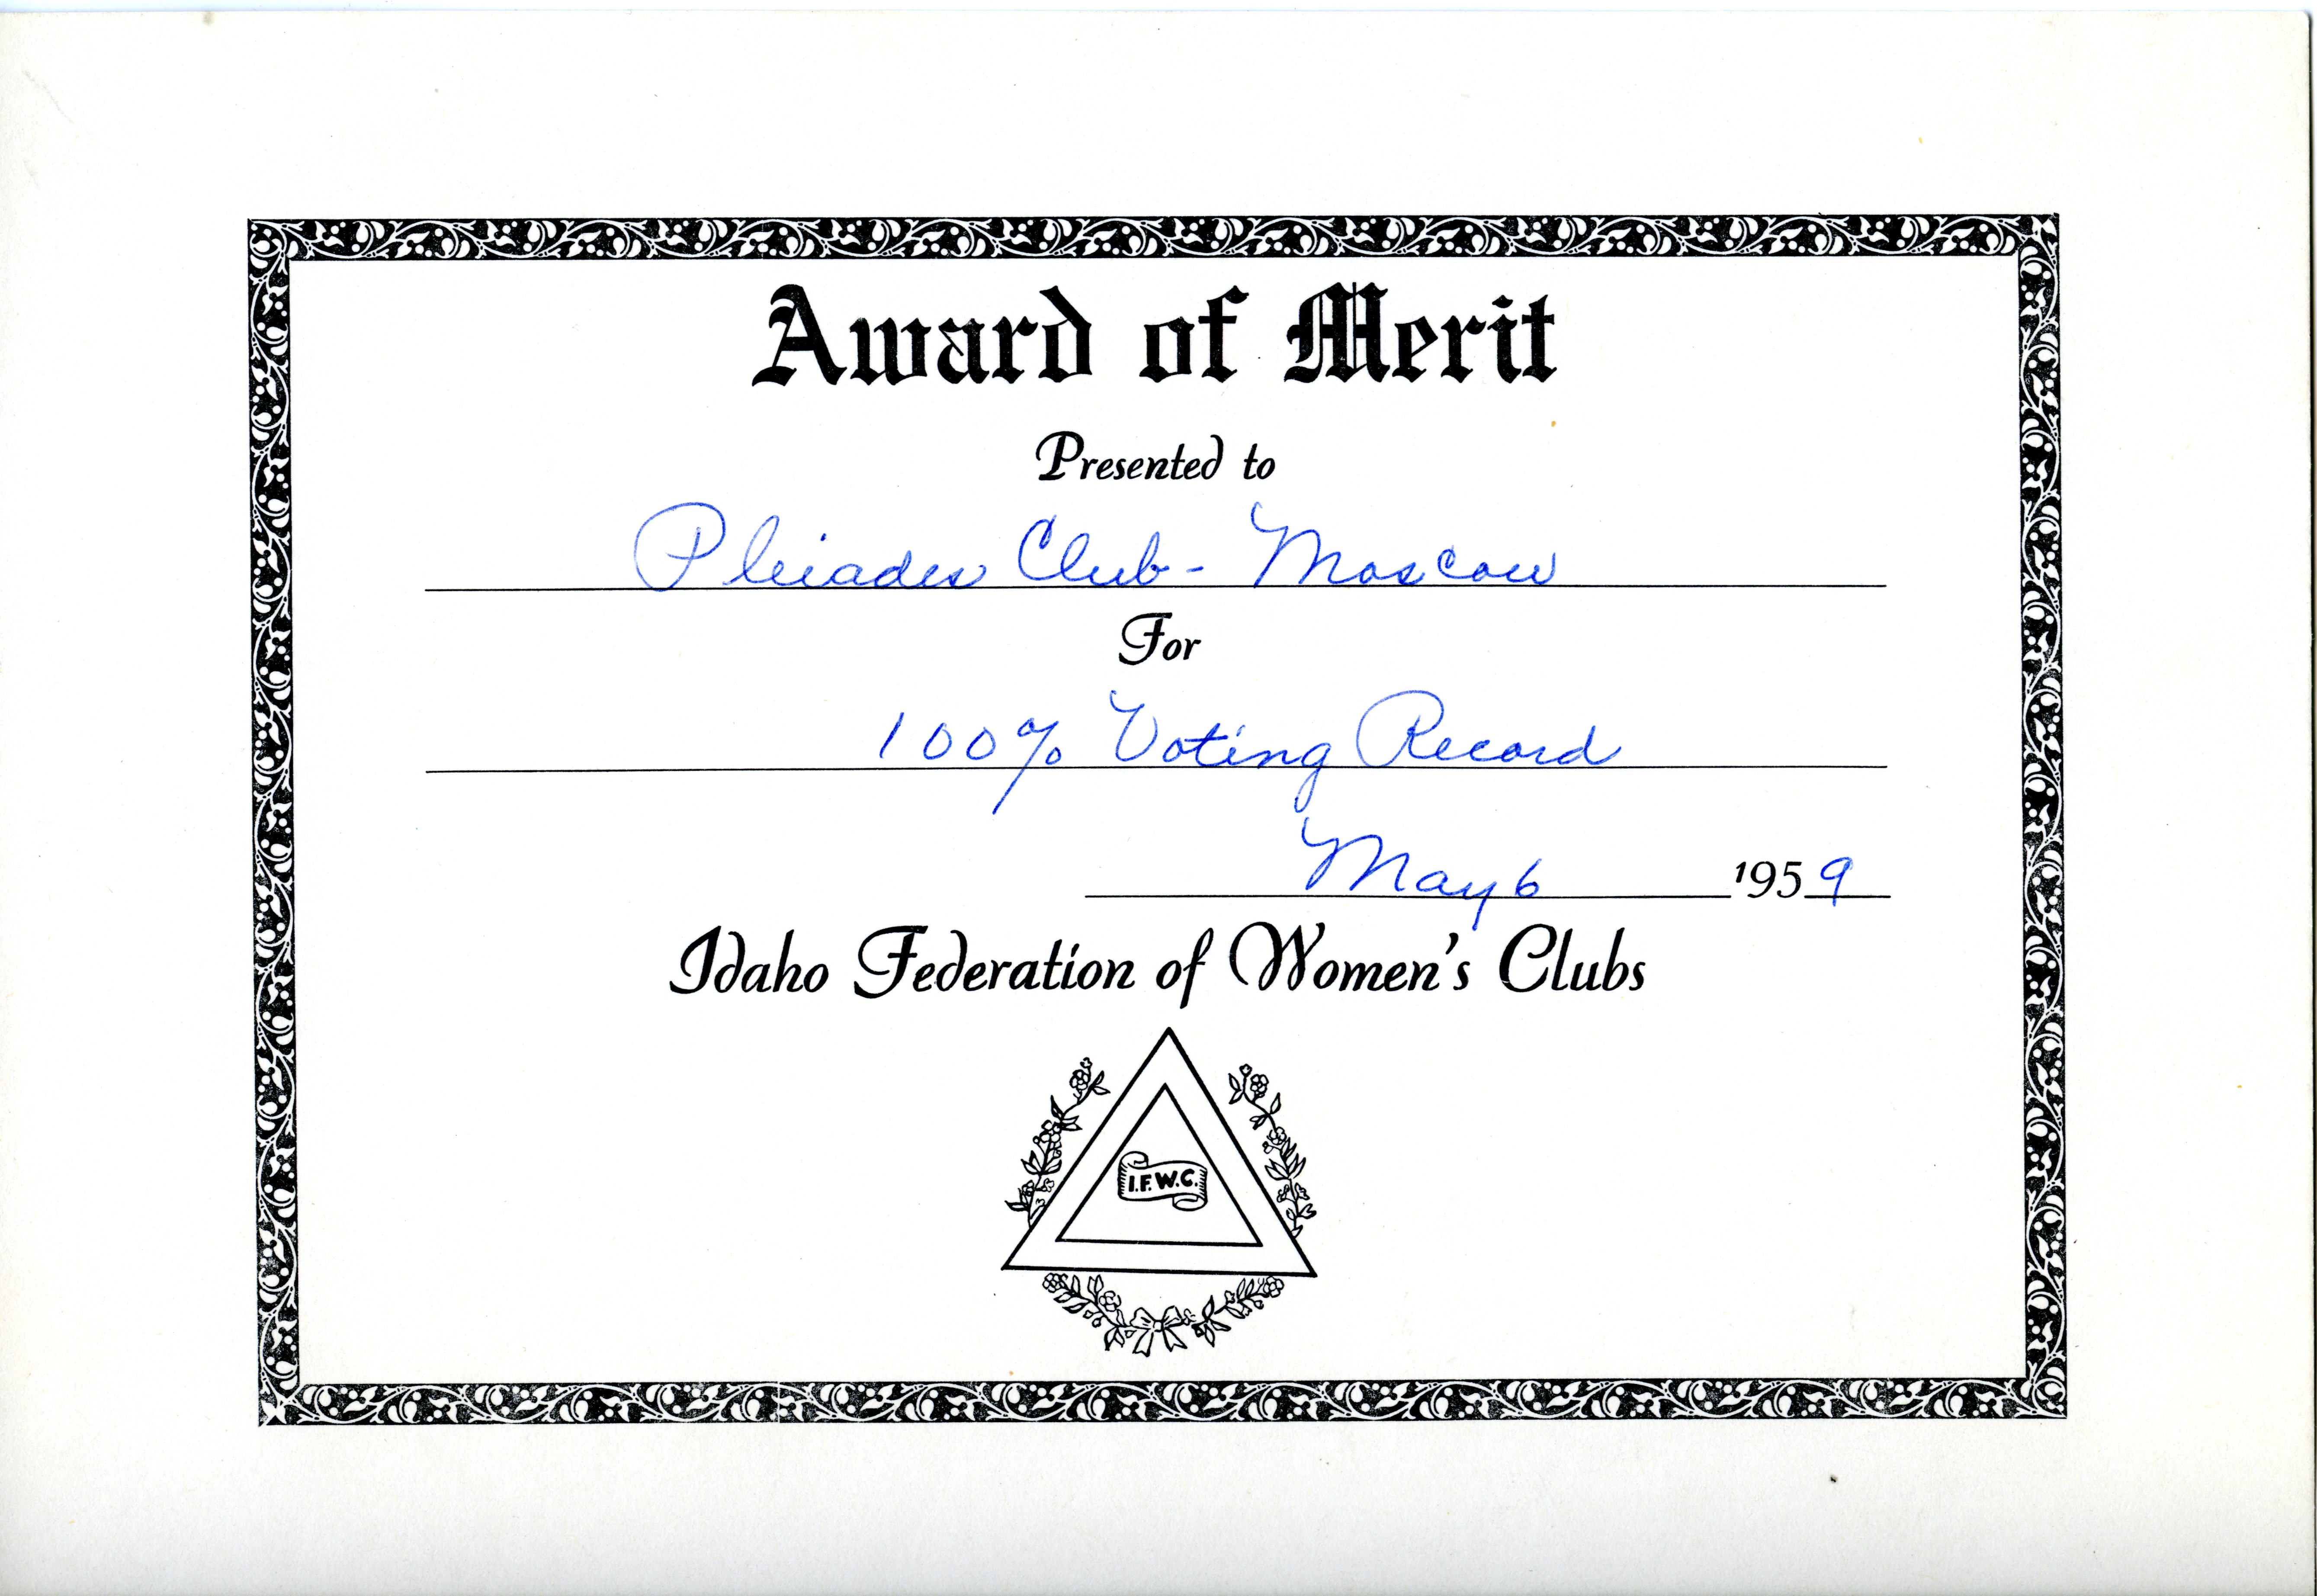 Award of Merit
Presented to
Pleiades Club - Moscow
For
100% Voting Record
May 6 1959
Idaho Federation of Women's Clubs
I.F.W.C.